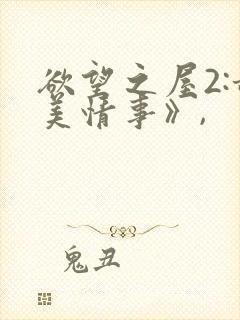 欲望之屋2:
美情事》,
鬼丑